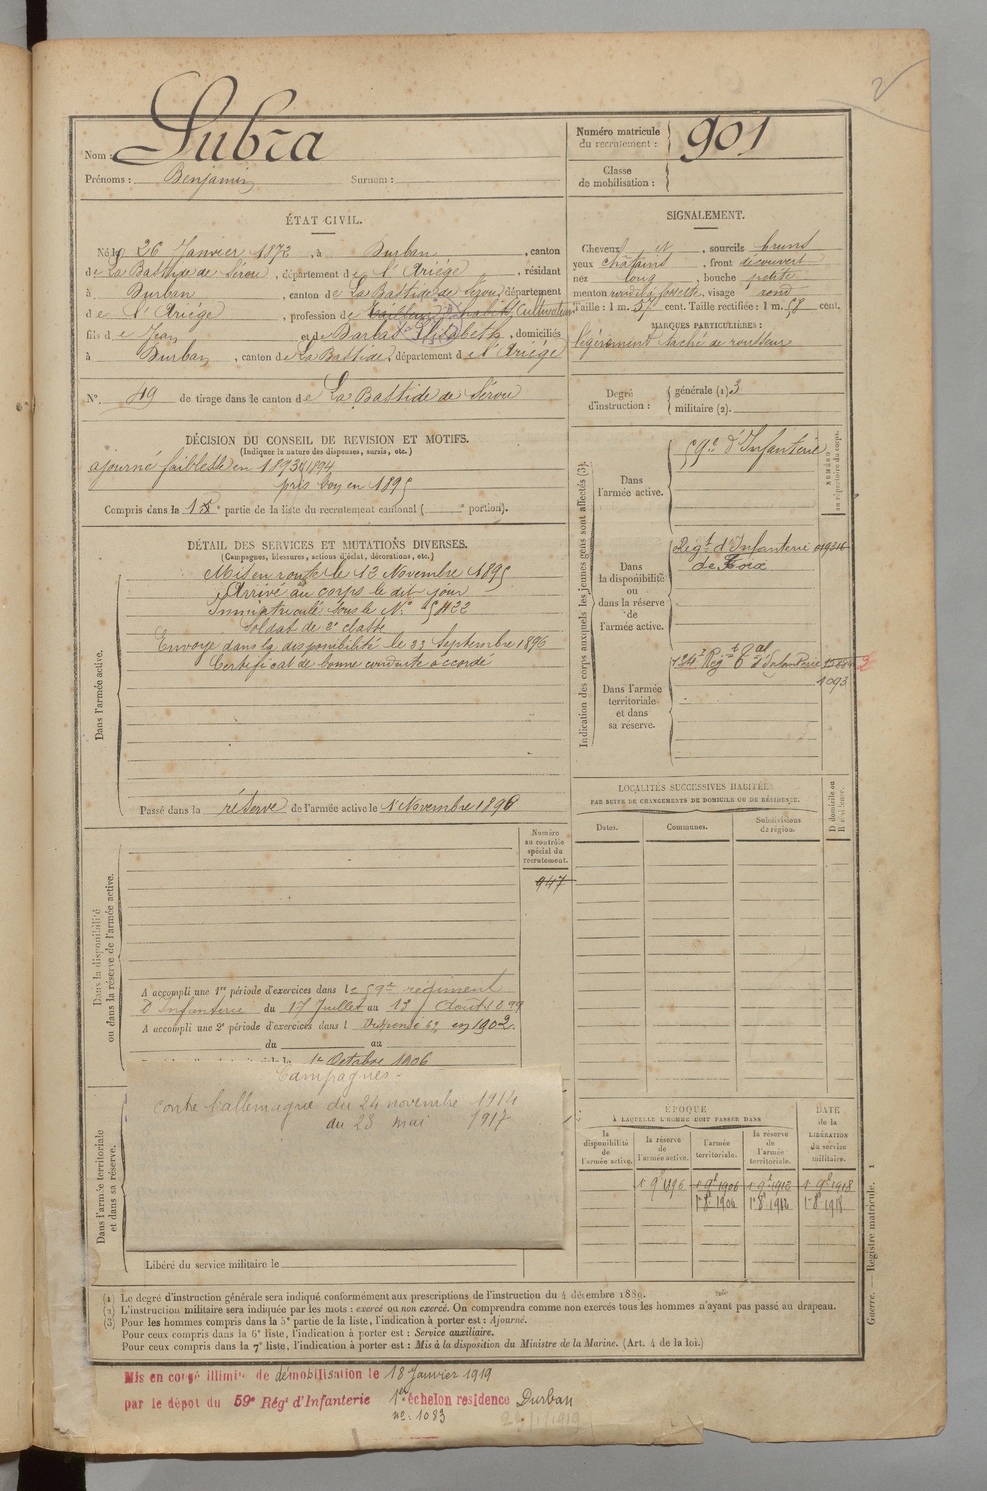 2
Nom : Subra
Prénoms : Benjamin Surnom :
Numéro matricule du recrutement : 901
Classe de mobilisation :
ÉTAT CIVIL.
Né le 26 Janvier 1872, à Durban, canton
de La Bastide de Sérou, département de l'Ariége, résidant
à Durban, canton de La Bastide de Sérou département
de l'Ariége, profession de tailleur d'habits, Cultivateur
fils de Jean et de Barbat Elisabeth, domiciliés
à Durban, canton de La Bastide, département de l'Ariége
N° 49 de tirage dans le canton de La Bastide de Sérou
SIGNALEMENT.
Cheveux N, sourcils bruns
yeux châtains, front découvert
nez long, bouche petite
menton rond à fossette, visage rond
Taille : 1 m. 57 cent. Taille rectifiée : 1 m. 58 cent.
MARQUES PARTICULIÈRES :
légèrement taché de rousseur
Degré d'instruction : générale (1) 3
militaire (2).
DÉCISION DU CONSEIL DE REVISION ET MOTIFS.
(Indiquer la nature des dispenses, sursis, etc.)
ajourné faiblesse en 1893 & 1894
pris bon en 1895
Compris dans la 1re partie de la liste du recrutement cantonal ( e portion).
DÉTAIL DES SERVICES ET MUTATIONS DIVERSES.
(Campagnes, blessures, actions d'éclat, décorations, etc.)
Dans l'armée active.
Mis en route le 12 Novembre 1895
Arrivé au corps le dit jour
Immatriculé sous le N° 5422
Soldat de 2e classe
Envoyé dans la disponibilité le 23 Septembre 1896
Certificat de bonne conduite accordé
Passé dans la réserve de l'armée active le 1 Novembre 1896
Indication des corps auxquels les jeunes gens sont affectés (3).
NUMÉRO au répertoire du corps.
Dans l'armée active.
59e d'Infanterie
Dans la disponibilité ou dans la réserve de l'armée active.
Régt d'Infanterie
de Foix
Dans l'armée territoriale et dans sa réserve.
1093
LOCALITÉS SUCCESSIVES HABITÉES
PAR SUITE DE CHANGEMENTS DE DOMICILE OU DE RÉSIDENCE.
Dates. Communes. Subdivisions de région. D domicile ou R résidence.
Numéro au contrôle spécial du recrutement.
947
Dans la disponibilité ou dans la réserve de l'armée active.
A accompli une 1re période d'exercices dans le 59e régiment
D'Infanterie du 17 Juillet au 13 Août 1899
A accompli une 2e période d'exercices dans l Dispensé en 1902.
du au
1er Octobre 1906
Dans l'armée territoriale et dans sa réserve.
Campagnes -
contre l'allemagne du 24 novembre 1914
du 23 mai 1917
Libéré du service militaire le
ÉPOQUE
À LAQUELLE L'HOMME DOIT PASSER DANS
DATE de la LIBÉRATION du service militaire.
la disponibilité de l'armée active. la réserve de l'armée active. l'armée territoriale. la réserve de l'armée territoriale.
1 9e 1896 1 9e 1906 1 9e 1912 1 9e 1918
1 8e 1906 1 8e 1912 1 8e 1918
(1) Le degré d'instruction générale sera indiqué conformément aux prescriptions de l'instruction du 4 décembre 1889.
(2) L'instruction militaire sera indiquée par les mots : exercé ou non exercé. On comprendra comme non exercés tous les hommes n'ayant pas passé au drapeau.
(3) Pour les hommes compris dans la 5e partie de la liste, l'indication à porter est : Ajourné.
Pour ceux compris dans la 6e liste, l'indication à porter est : Service auxiliaire.
Pour ceux compris dans la 7e liste, l'indication à porter est : Mis à la disposition du Ministre de la Marine. (Art. 4 de la loi.)
Guerre. — Registre matricule. 1
Mis en congé illimité de démobilisation le 18 Janvier 1919
par le dépot du 59e Régt d'Infanterie 1er échelon residence Durban
n° : 1083